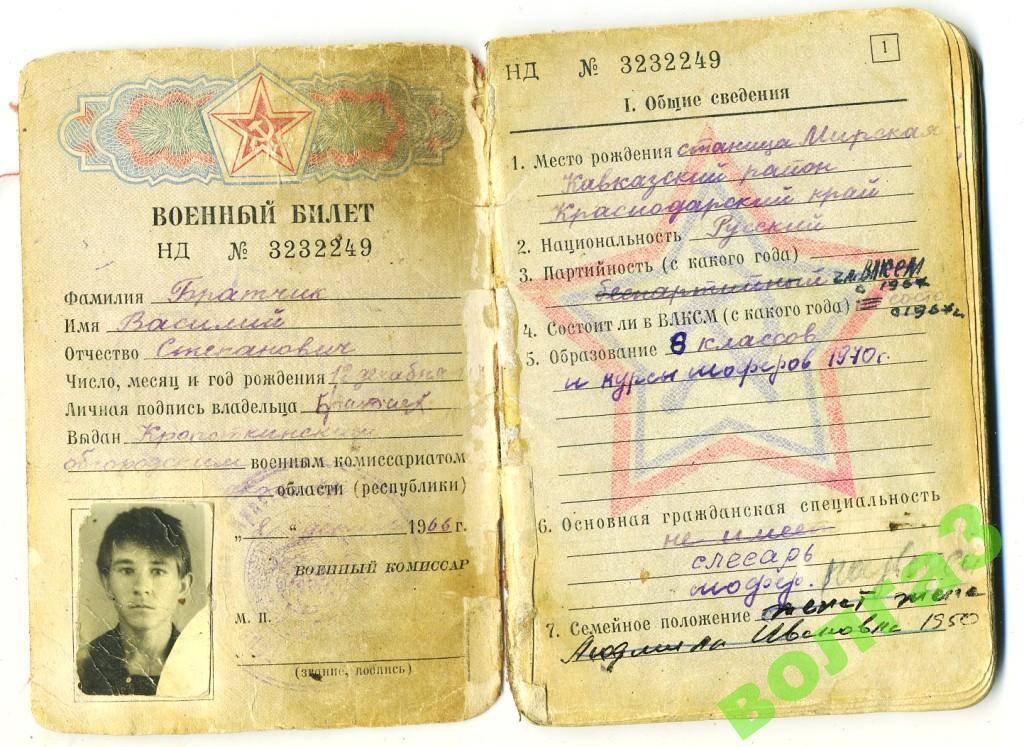 ВОЕННЫЙ БИЛЕТ
НД № 3232249
Фамилия Братчик
Имя Василий
Отчество Степанович
Число, месяц и год рождения 12 декабря
Личная подпись владельца
Выдан Кропоткинским
военным комиссариатом
области (республики)
1966 г.
ВОЕННЫЙ КОМИССАР
М. П.
(звание, подпись)
НД № 3232249
1
I. Общие сведения
1. Место рождения станица Мирская
Кавказский район
Краснодарский край
2. Национальность Русский
3. Партийность (с какого года)
беспартийный чл ВЛКСМ
с 1967
4. Состоит ли в ВЛКСМ (с какого года)
с 1967 г.
5. Образование 8 классов
и курсы шоферов 1970 г.
6. Основная гражданская специальность
не имеет
слесарь
шофер
7. Семейное положение женат жена
Людмила Ивановна 1950
волга3